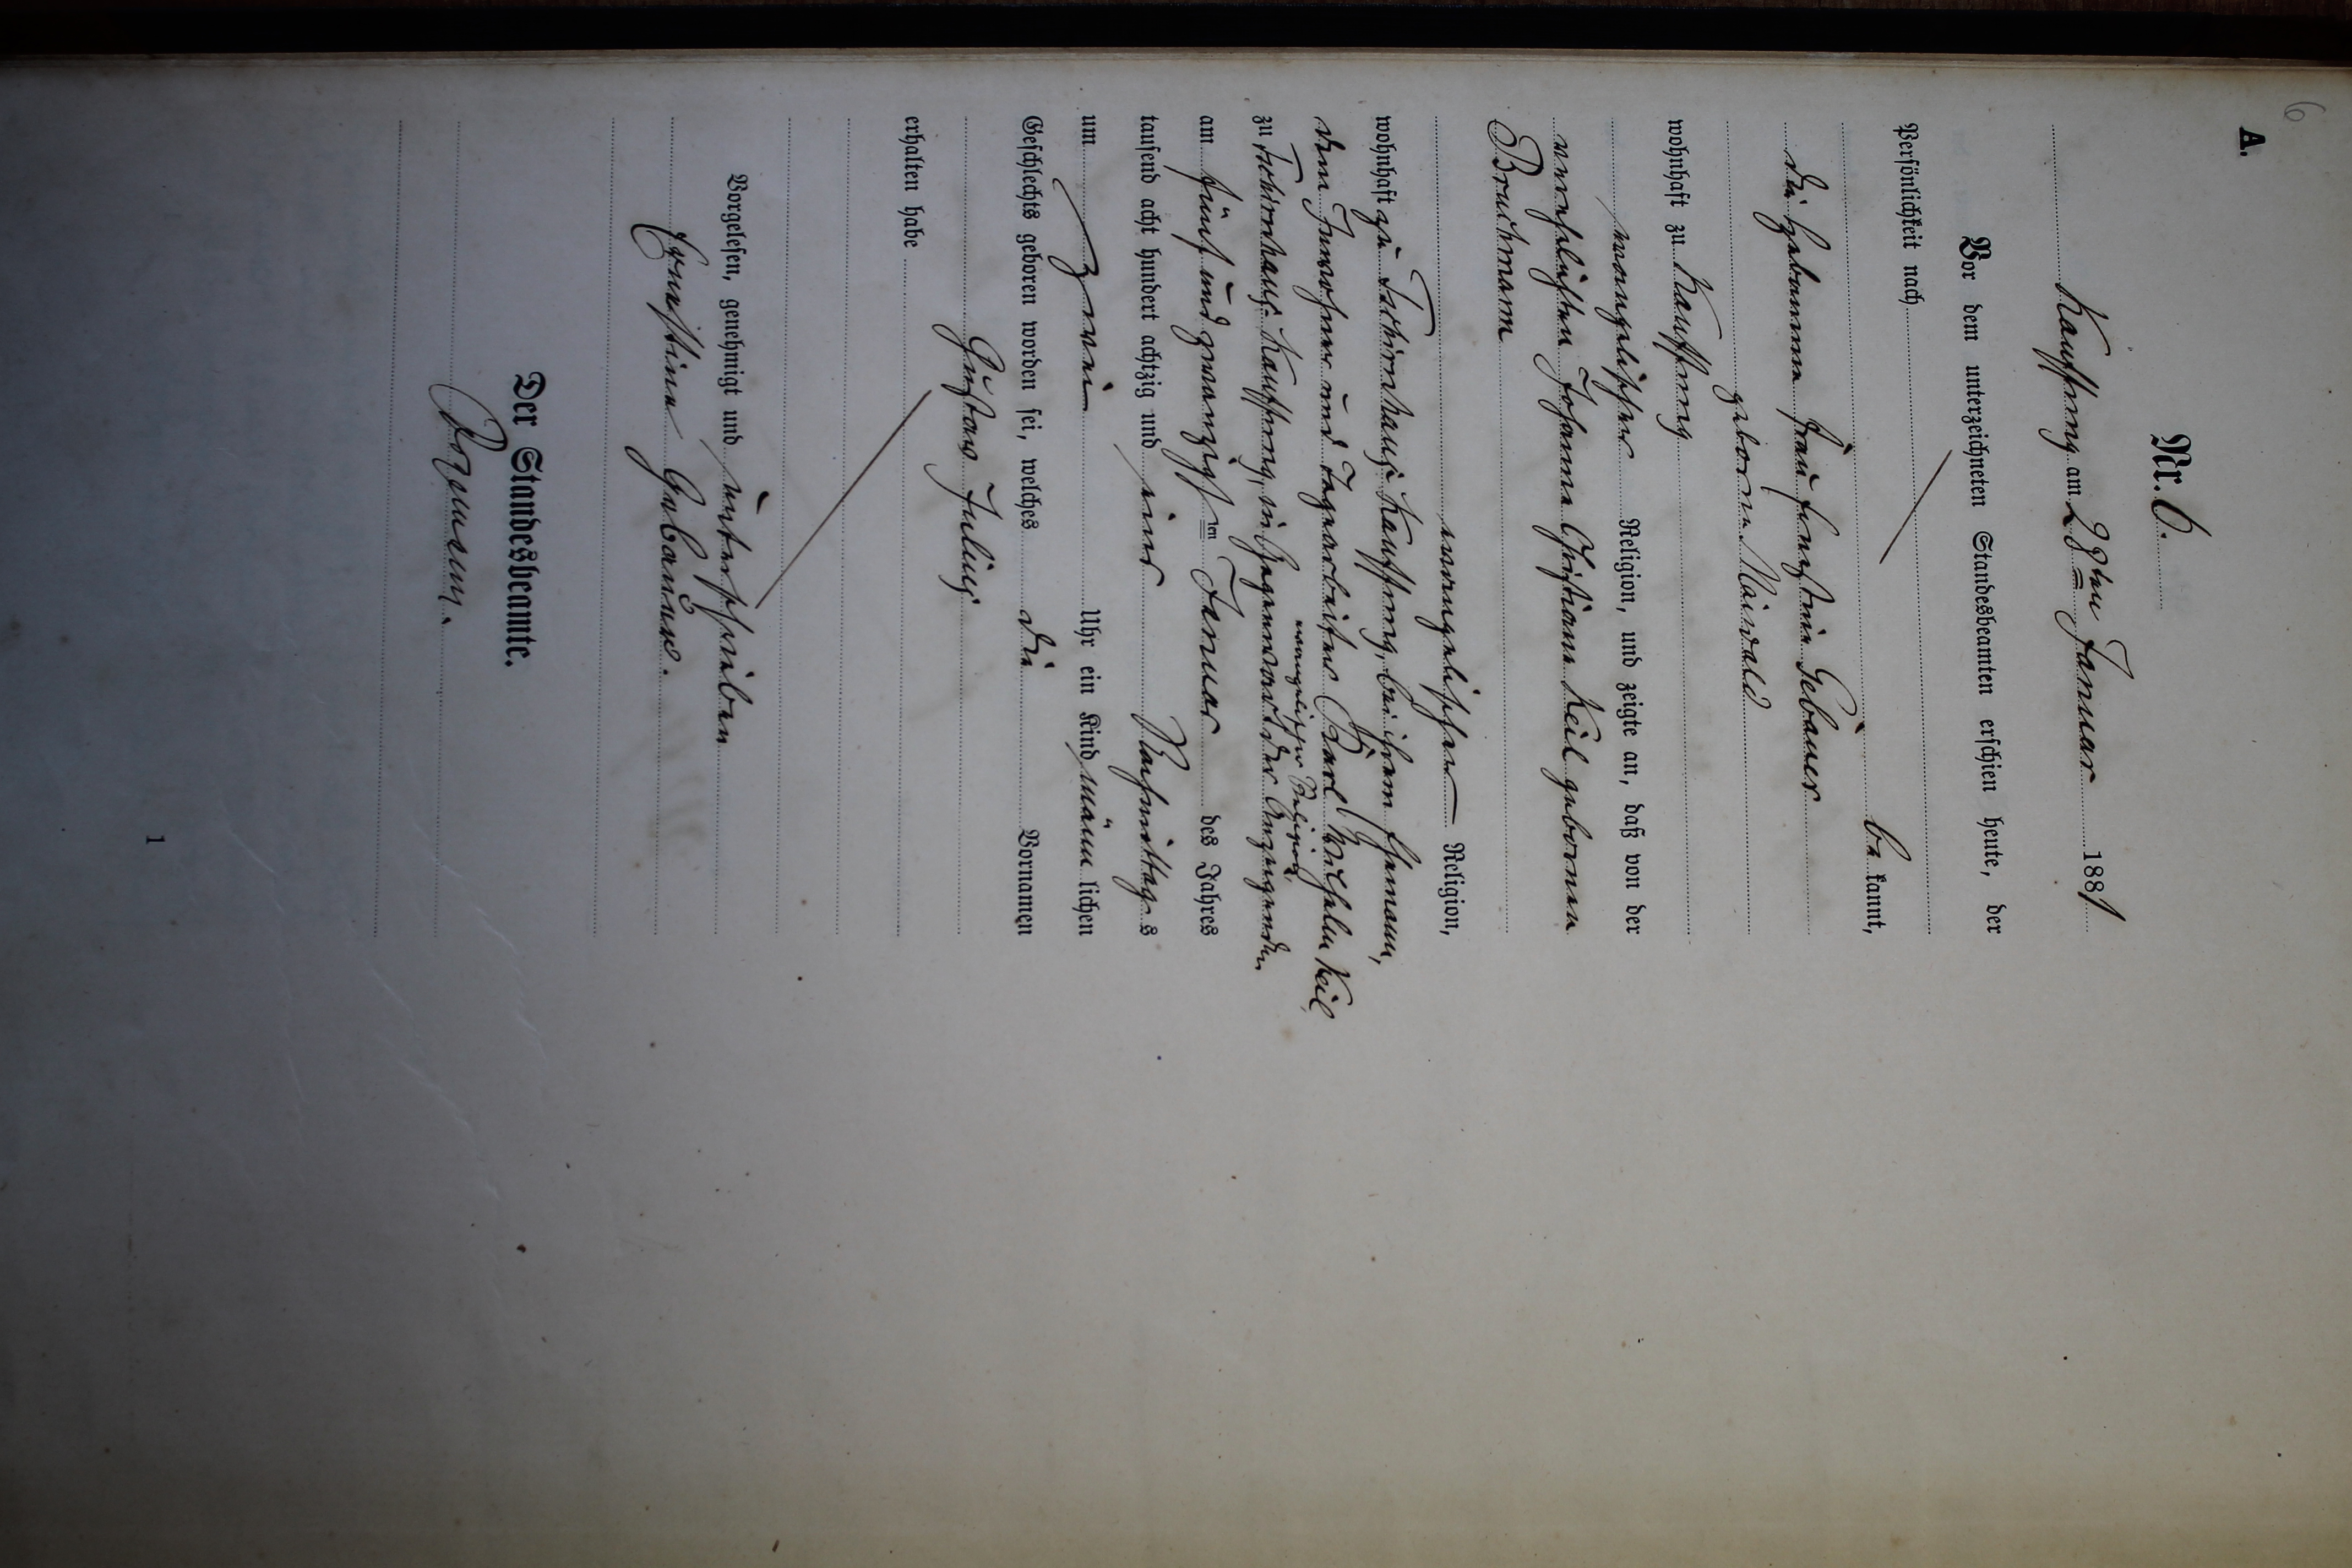 6
A.
Nr. 6.
Kauffung am 28ten Januar 1881
Vor dem unterzeichneten Standesbeamten erschien heute, der
Persönlichkeit nach
be kannt,
die Hebamme Frau Ernestine Gebauer
geborne Maiwald
wohnhaft zu Kauffung
evangelischer Religion, und zeigte an, daß von der
verehelichten Johanne Christiane Keil gebornen
Bruchmann
evangelischer Religion,
wohnhaft zu Tschirnhaus Kauffung, bei ihrem Ehemann,
dem Inwohner und Tagearbeiter Karl Wilhelm Keil
evangelischer Religion,
zu Tschirnhaus Kauffung, in Gegenwart der Anzeigenden
am fünf und zwanzigsten Januar des Jahres
tausend acht hundert achtzig und eins Nachmittags
um zwei Uhr ein Kind männlichen
Geschlechts geboren worden sei, welches die Vornamen
Gustav Julius
erhalten habe
Vorgelesen, genehmigt und unterschrieben
Ernestine Gebauer.
Der Standesbeamte.
1